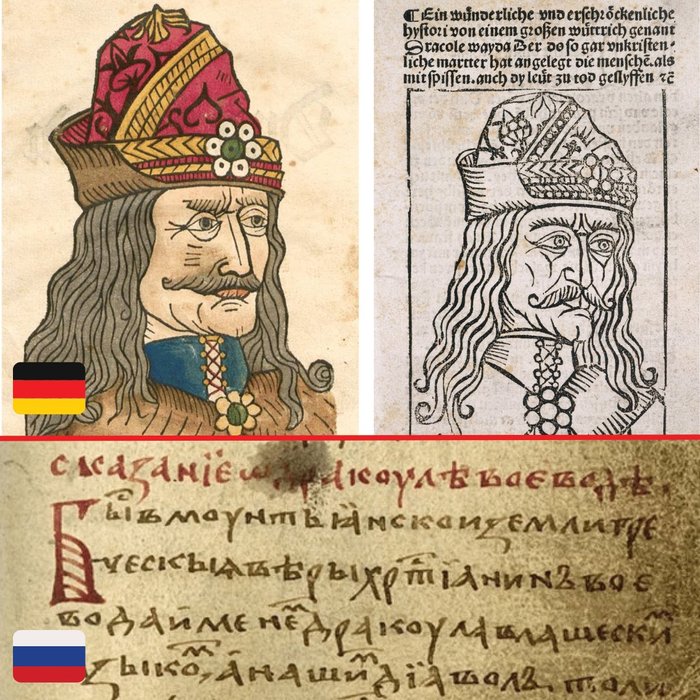 ¶ Ein wünderliche vnd erschꝛöckenliche
hystoꝛi von einem großen wüttrich genant
Dracole wayda Der do so gar vnkristen⸗
liche martter hat angelegt die menschē. als
mit spissen. auch dy leüt zu tod geslyffen ꝛc̄
сказанїе ѡ дракоулѣ воеводѣ.
Быⷭ҇ въ моунтьꙗнскои земли гре
ческыѧ вѣры хрⷭ҇тїанинъ вое
вода именеⷨ дракоула влашескиⷨ
ꙗзыкоⷨ, а нашиⷨ дїаволъ. толи